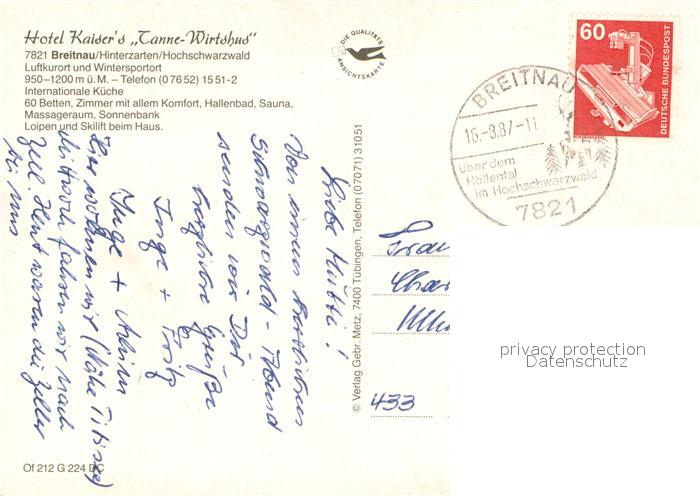 Hotel Kaiser's „Tanne-Wirtshus"
7821 Breitnau/Hinterzarten/Hochschwarzwald
Luftkurort und Wintersportort
950–1200 m ü. M. – Telefon (0 76 52) 15 51-2
Internationale Küche
60 Betten, Zimmer mit allem Komfort, Hallenbad, Sauna,
Massageraum, Sonnenbank
Loipen und Skilift beim Haus.
DIE QUALITÄTS
ANSICHTSKARTE
60
DEUTSCHE BUNDESPOST
BREITNAU
16.-8.87-11
Über dem
Höllental
im Hochschwarzwald
7821
Liebe Mutti!
Von einem herrlichen
Schwarzwald-Abend
senden wir Dir
herzliche Grüße
Inge + Fritz
Inge + Achim
Hier wohnen wir (Nähe Titisee)
Mittwoch fahren wir nach
Zell. Heut waren die Zeller
bei uns
© Verlag Gebr. Metz, 7400 Tübingen, Telefon (07071) 31051
Frau
433
privacy protection
Datenschutz
Of 212 G 224 DC